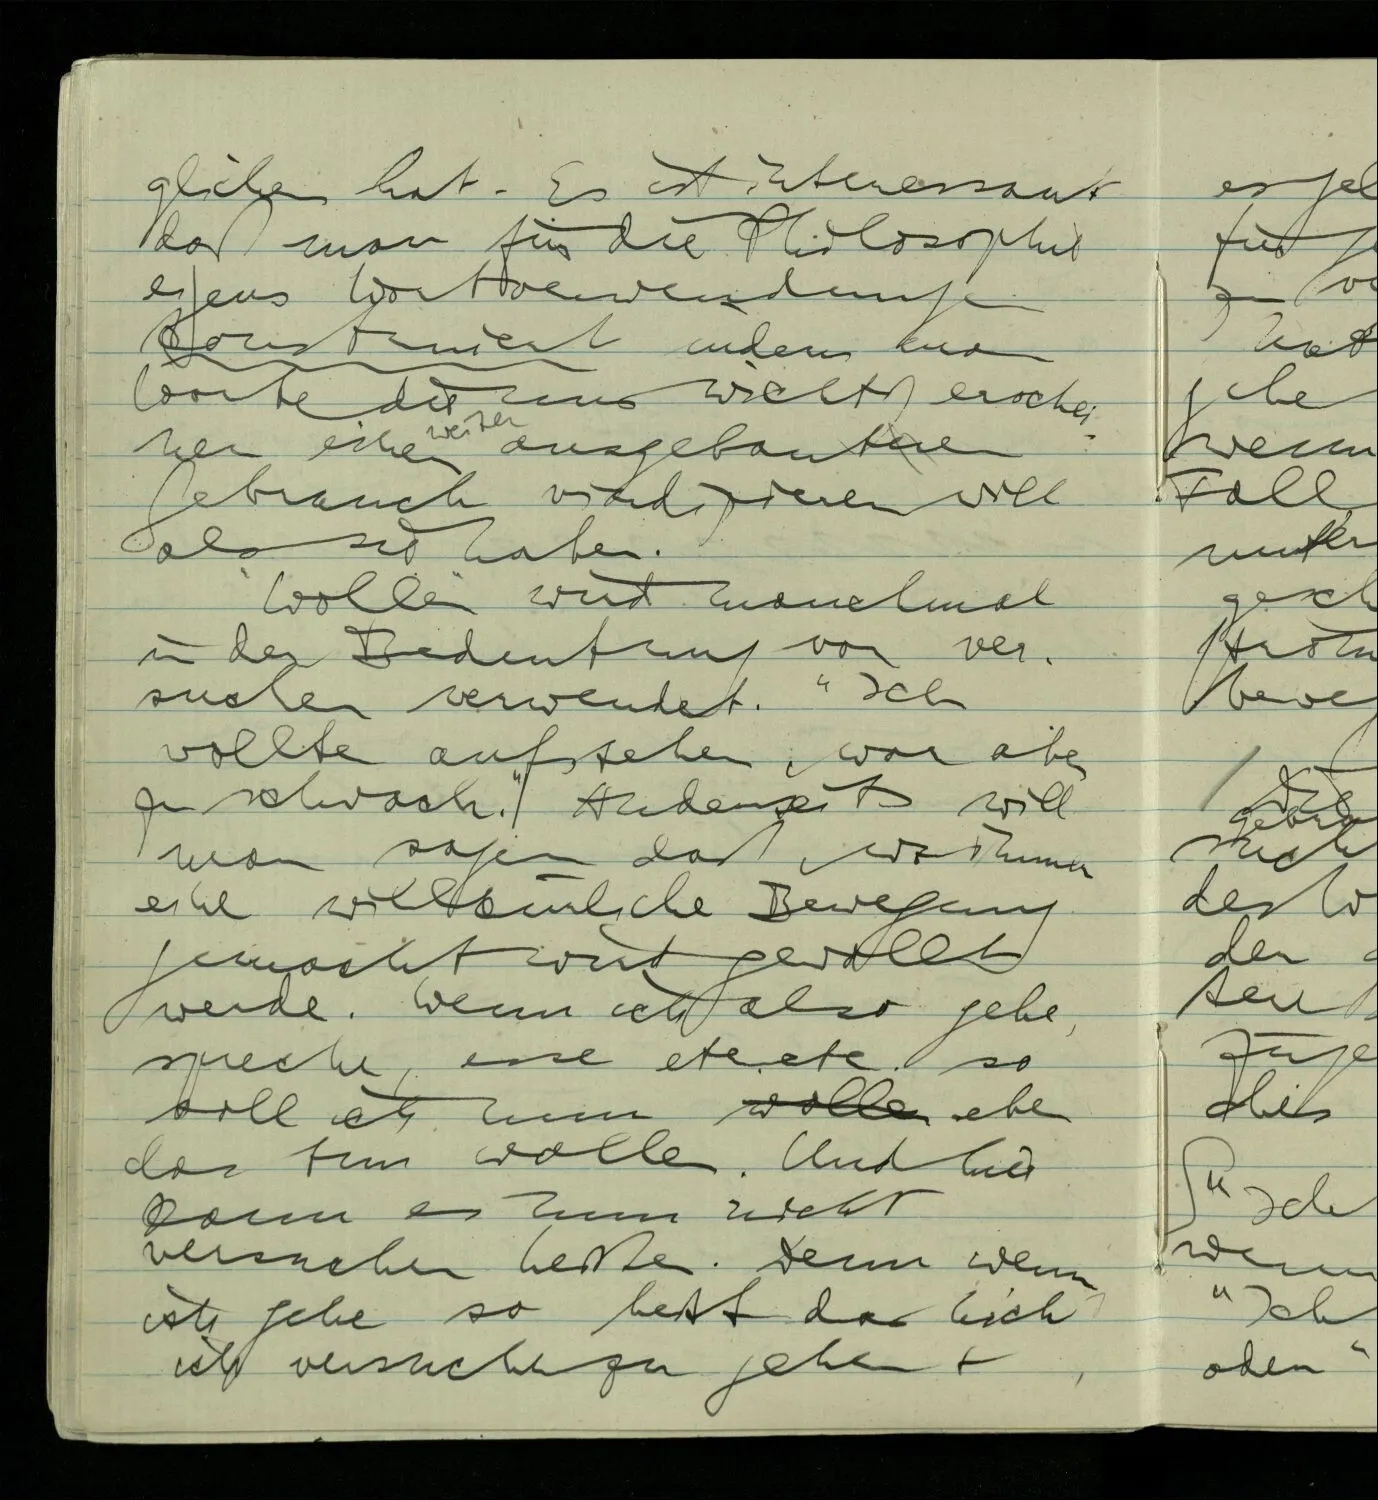 glichen hat. – Es ist interessant
daß man für die Philosophie
eigens Wortverwendungen
konstruiert indem man
Worte die uns wichtig erschei-
weiter
nen einen ausgebauteren
Gebrauch vindizieren will
als sie haben.
"Wollen" wird manchmal
in der Bedeutung von ver-
suchen verwendet. "Ich
wollte aufstehen, war aber
zu schwach." Anderseits will
man sagen daß, wo immer
eine willkürliche Bewegung
gemacht wird gewollt
werde. Wenn ich also gehe,
spreche, esse etc. etc. so
soll ich nun wollen eben
das tun wollen. Und hier
kann es nun nicht
versuchen heißen. Denn wenn
ich gehe so heißt das nicht
ich versuche zu gehen +
es
für
zu
hat
gehe
wenn
Fall
unter
gesch
Ström
beweg
/ Die
gebra
such
des W
der
ten
Züge
dies
"Ich
wenn
"Ich
oder "